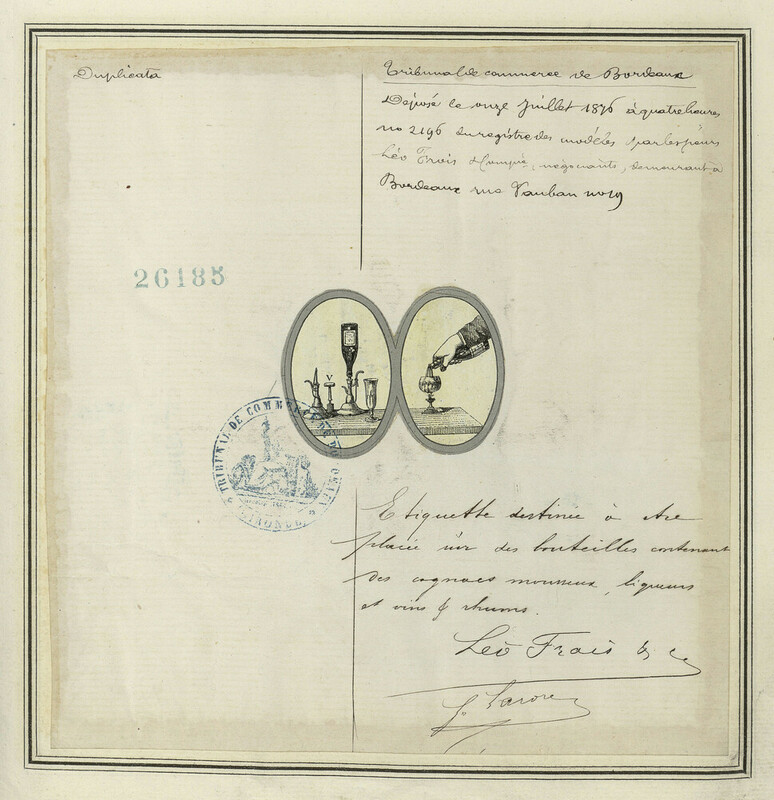 Duplicata
Tribunal de commerce de Bordeaux
Déposé le onze Juillet 1876 à quatre heures
no 2196 du registre des modèles par les sieurs
Léo Frois & Compie, négociants, demeurant à
Bordeaux rue Vauban no 19
26185
V
TRIBUNAL DE COMMERCE DE
GIRONDE
Etiquette destinée à être
placée sur des bouteilles contenant
des cognacs mousseux, liqueurs
et vins & rhums.
Léo Frois & Cie